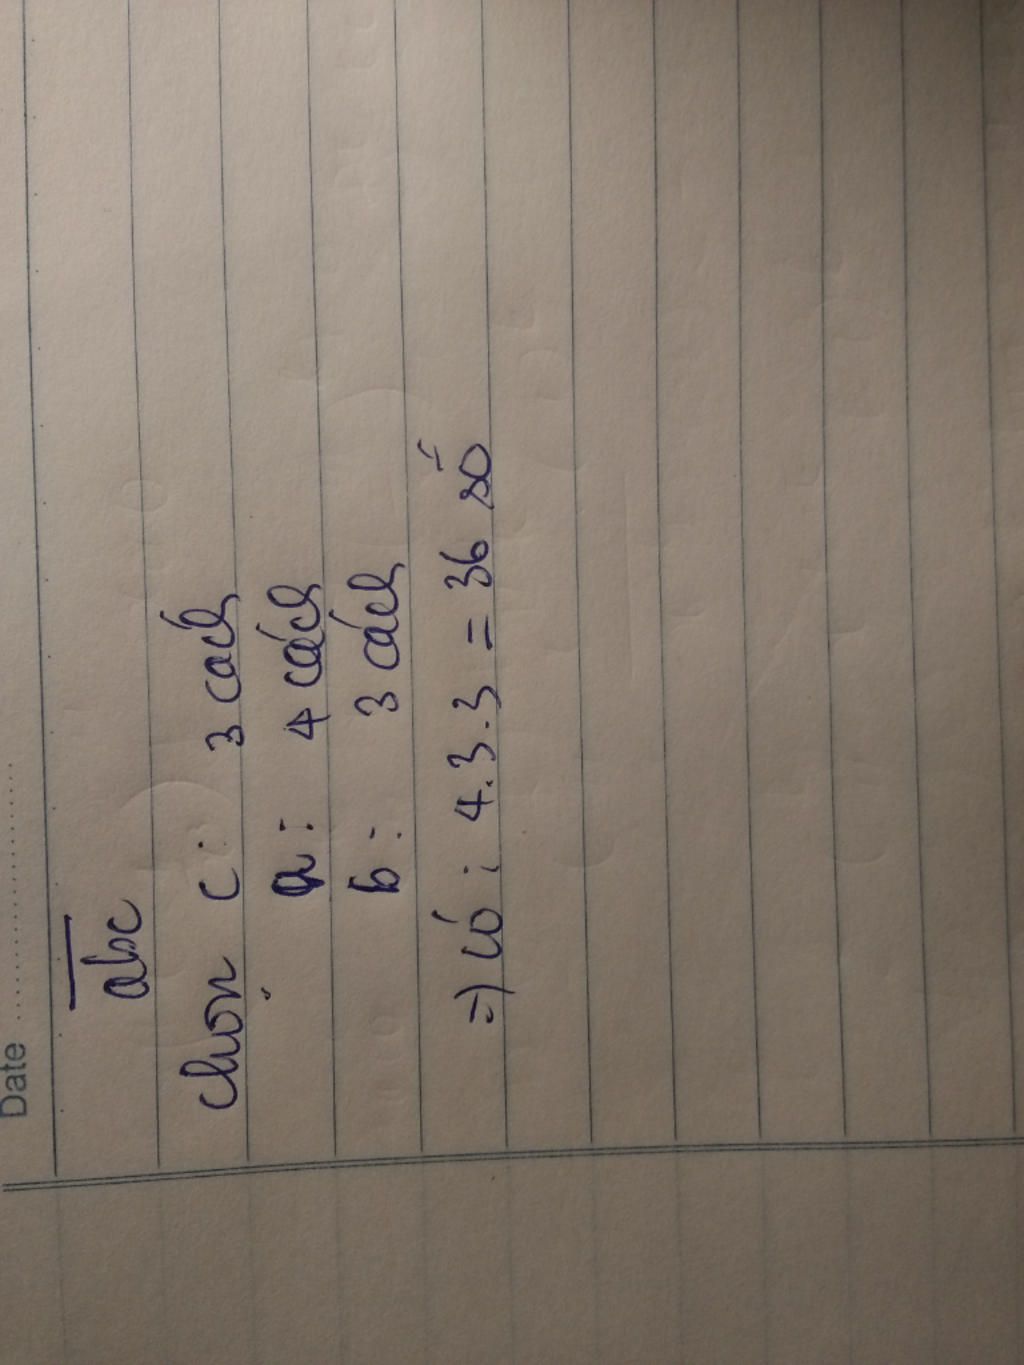 Date ....................
abc
chọn c: 3 cách
a: 4 cách
b: 3 cách
=) có: 4.3.3 = 36 số